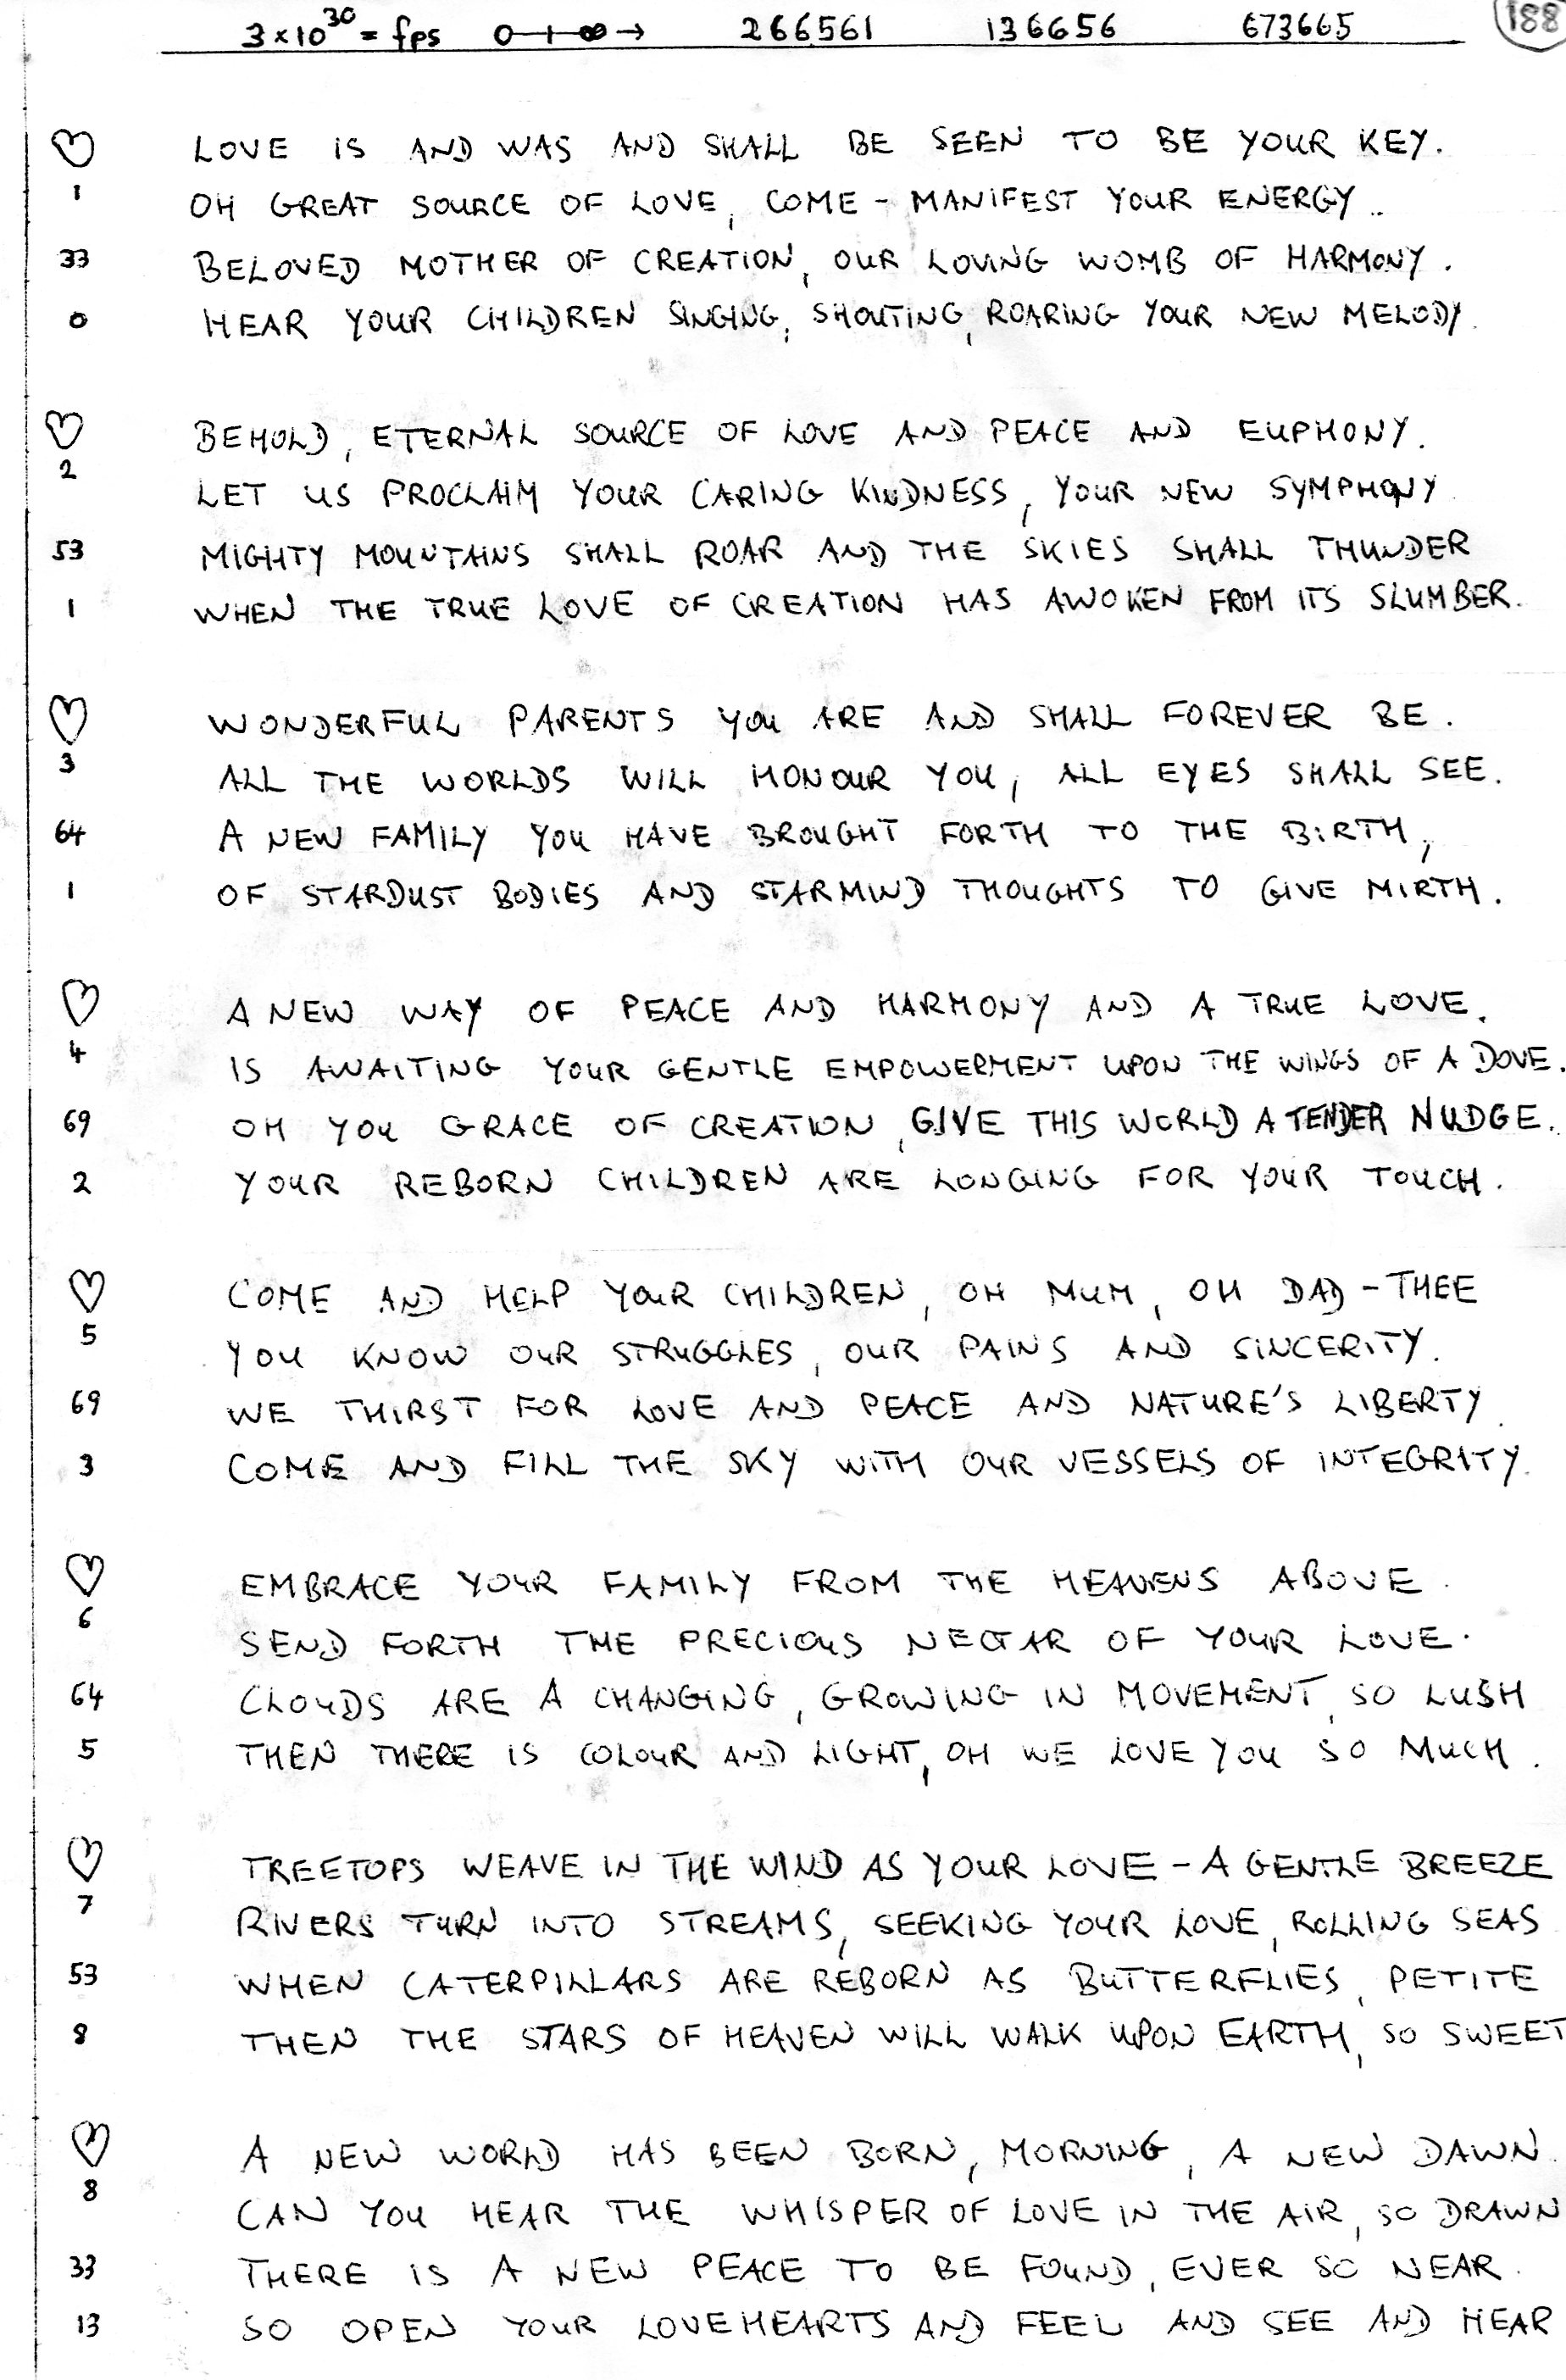 3×10³⁰ = fps 0—1—∞→ 266561 136656 673665 188
♡ LOVE IS AND WAS AND SHALL BE SEEN TO BE YOUR KEY.
1 OH GREAT SOURCE OF LOVE, COME - MANIFEST YOUR ENERGY..
33 BELOVED MOTHER OF CREATION, OUR LOVING WOMB OF HARMONY.
0 HEAR YOUR CHILDREN SINGING, SHOUTING, ROARING YOUR NEW MELODY.
♡ BEHOLD, ETERNAL SOURCE OF LOVE AND PEACE AND EUPHONY.
2 LET US PROCLAIM YOUR CARING KINDNESS, YOUR NEW SYMPHONY.
53 MIGHTY MOUNTAINS SHALL ROAR AND THE SKIES SHALL THUNDER
1 WHEN THE TRUE LOVE OF CREATION HAS AWOKEN FROM ITS SLUMBER.
♡ WONDERFUL PARENTS YOU ARE AND SHALL FOREVER BE.
3 ALL THE WORLDS WILL HONOUR YOU, ALL EYES SHALL SEE.
64 A NEW FAMILY YOU HAVE BROUGHT FORTH TO THE BIRTH,
1 OF STARDUST BODIES AND STARMIND THOUGHTS TO GIVE MIRTH.
♡ A NEW WAY OF PEACE AND HARMONY AND A TRUE LOVE.
4 IS AWAITING YOUR GENTLE EMPOWERMENT UPON THE WINGS OF A DOVE.
69 OH YOU GRACE OF CREATION, GIVE THIS WORLD A TENDER NUDGE.
2 YOUR REBORN CHILDREN ARE LONGING FOR YOUR TOUCH.
♡ COME AND HELP YOUR CHILDREN, OH MUM, OH DAD - THEE
5 YOU KNOW OUR STRUGGLES, OUR PAINS AND SINCERITY.
69 WE THIRST FOR LOVE AND PEACE AND NATURE'S LIBERTY.
3 COME AND FILL THE SKY WITH OUR VESSELS OF INTEGRITY.
♡ EMBRACE YOUR FAMILY FROM THE HEAVENS ABOVE.
6 SEND FORTH THE PRECIOUS NECTAR OF YOUR LOVE.
64 CLOUDS ARE A CHANGING, GROWING IN MOVEMENT, SO LUSH
5 THEN THERE IS COLOUR AND LIGHT, OH WE LOVE YOU SO MUCH.
♡ TREETOPS WEAVE IN THE WIND AS YOUR LOVE - A GENTLE BREEZE
7 RIVERS TURN INTO STREAMS, SEEKING YOUR LOVE, ROLLING SEAS
53 WHEN CATERPILLARS ARE REBORN AS BUTTERFLIES, PETITE
8 THEN THE STARS OF HEAVEN WILL WALK UPON EARTH, SO SWEET
♡ A NEW WORLD HAS BEEN BORN, MORNING, A NEW DAWN.
8 CAN YOU HEAR THE WHISPER OF LOVE IN THE AIR, SO DRAWN
33 THERE IS A NEW PEACE TO BE FOUND, EVER SO NEAR.
13 SO OPEN YOUR LOVEHEARTS AND FEEL AND SEE AND HEAR